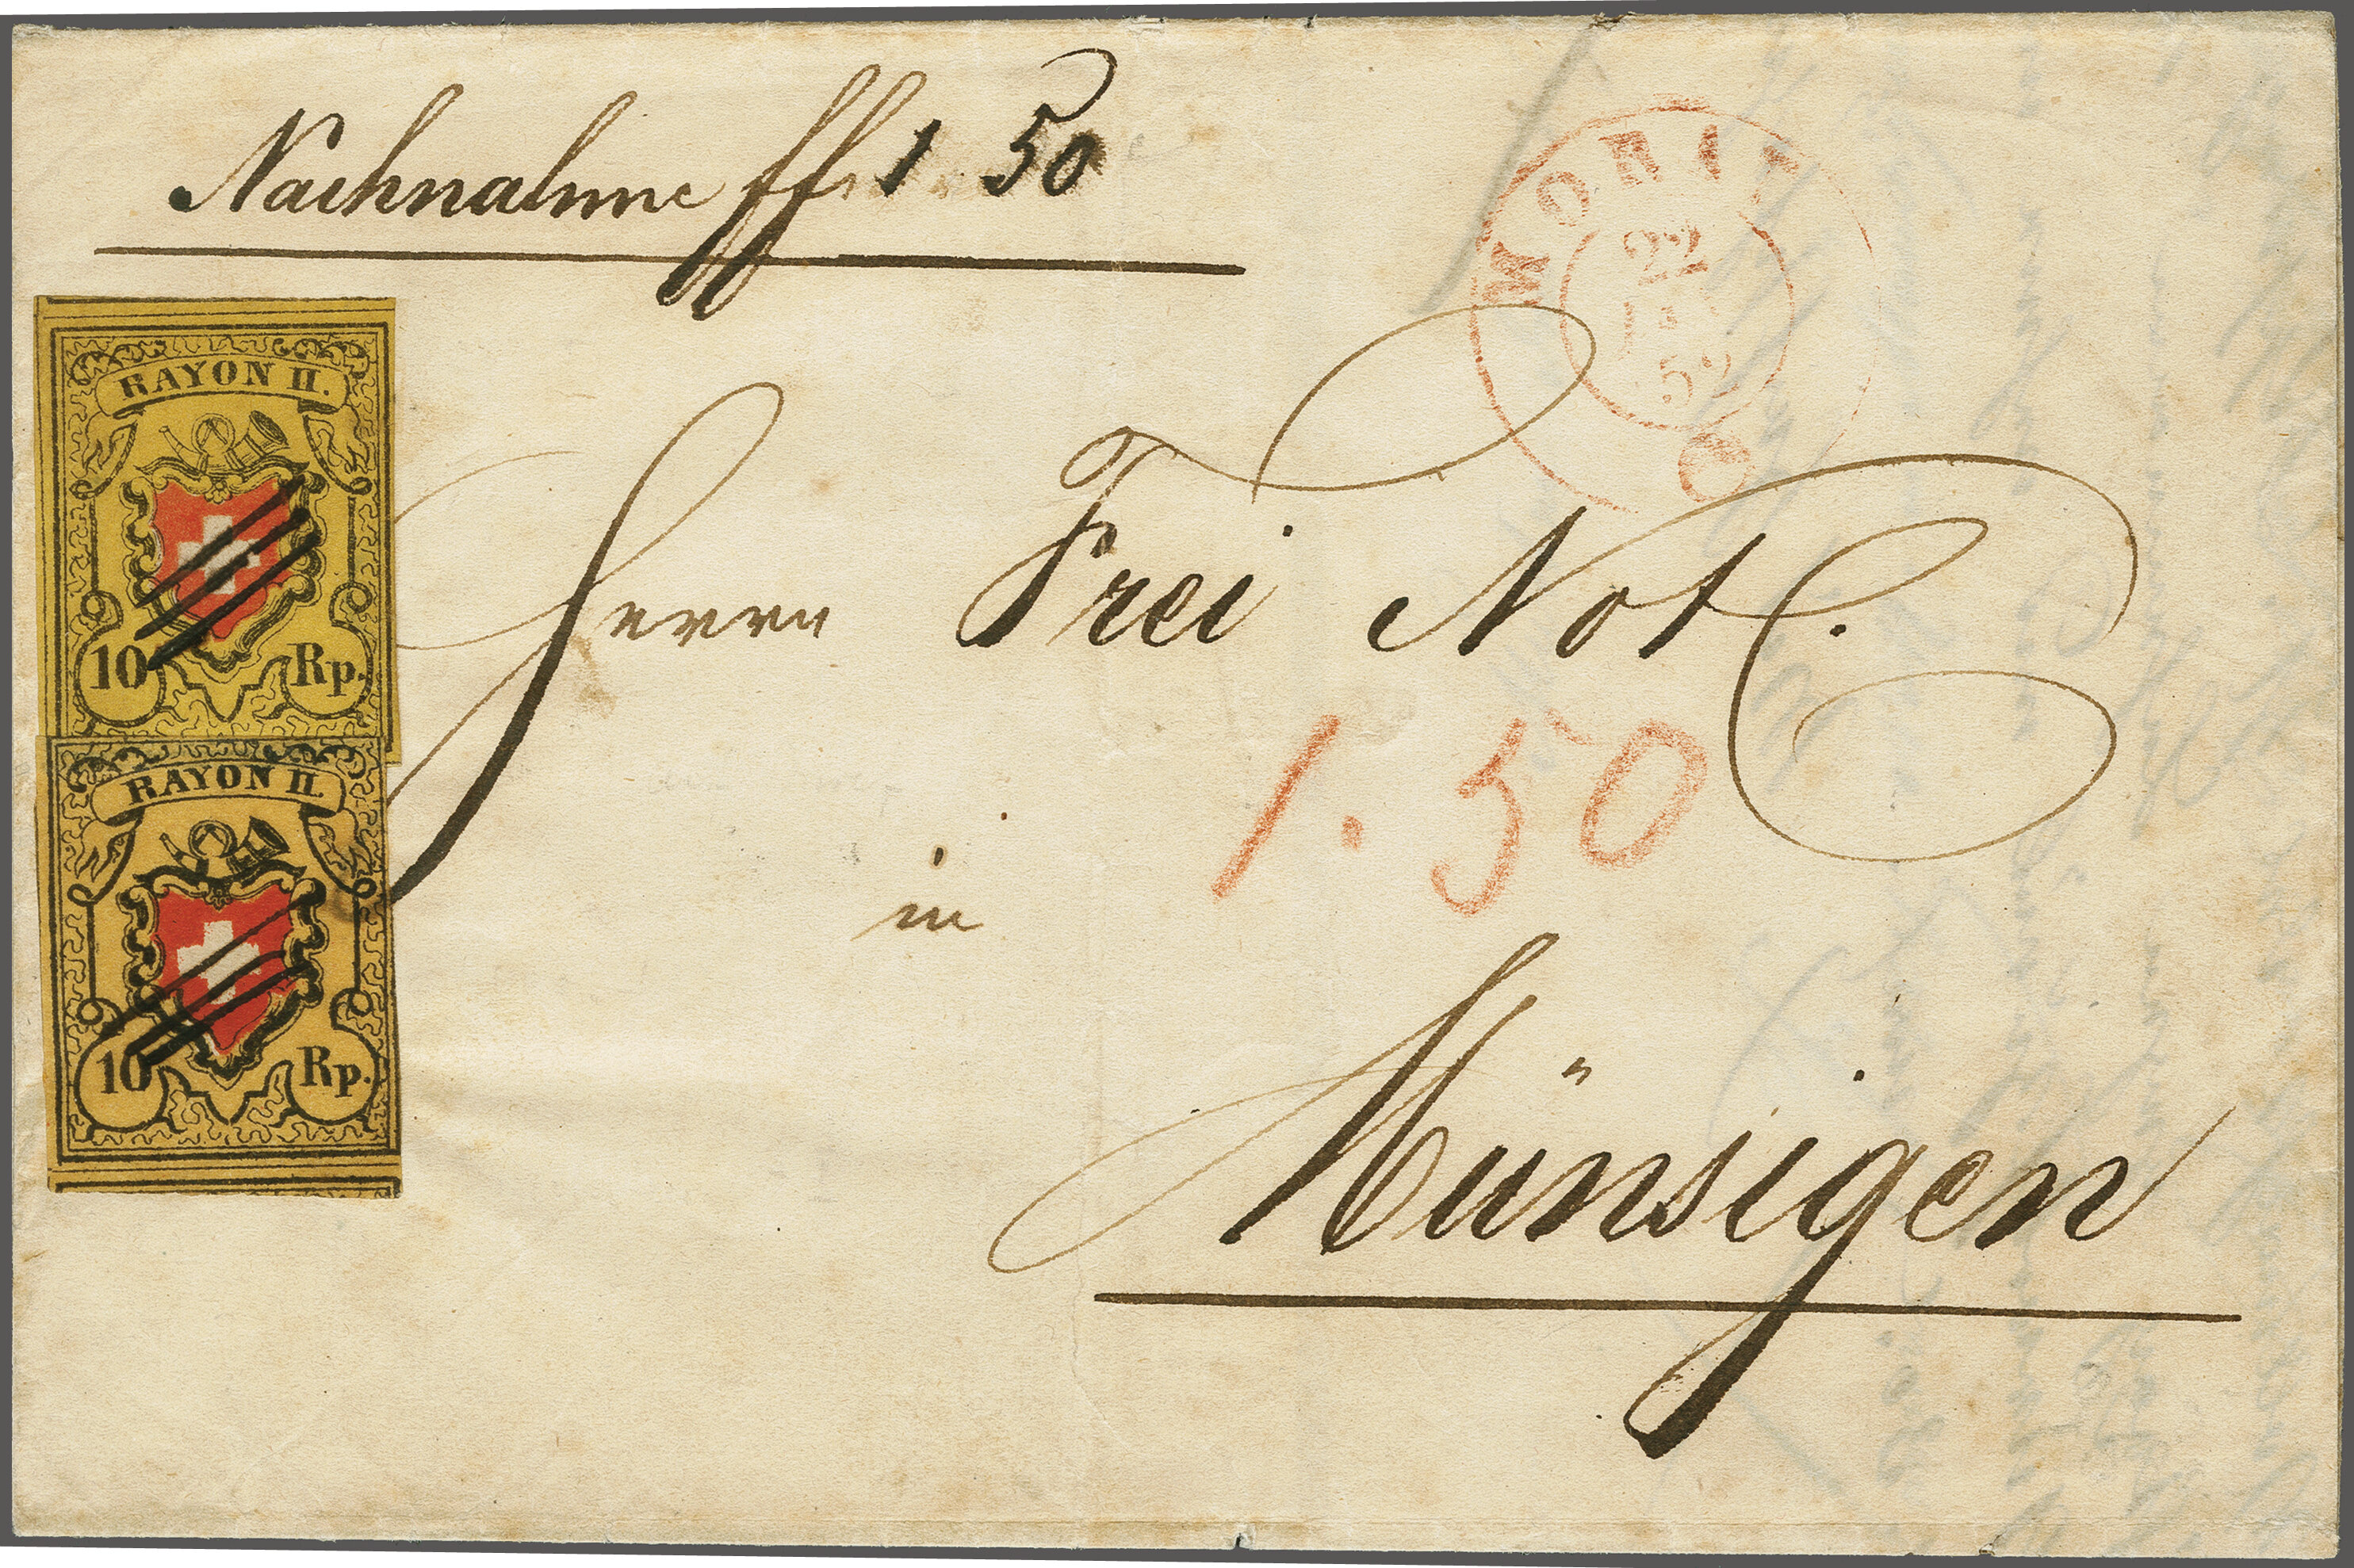 Nachnahme ff. 1. 50
MORAT
22
52
RAYON II.
10 Rp.
RAYON II.
10 Rp.
Herrn Frei Not.
1. 50
in
Münsigen